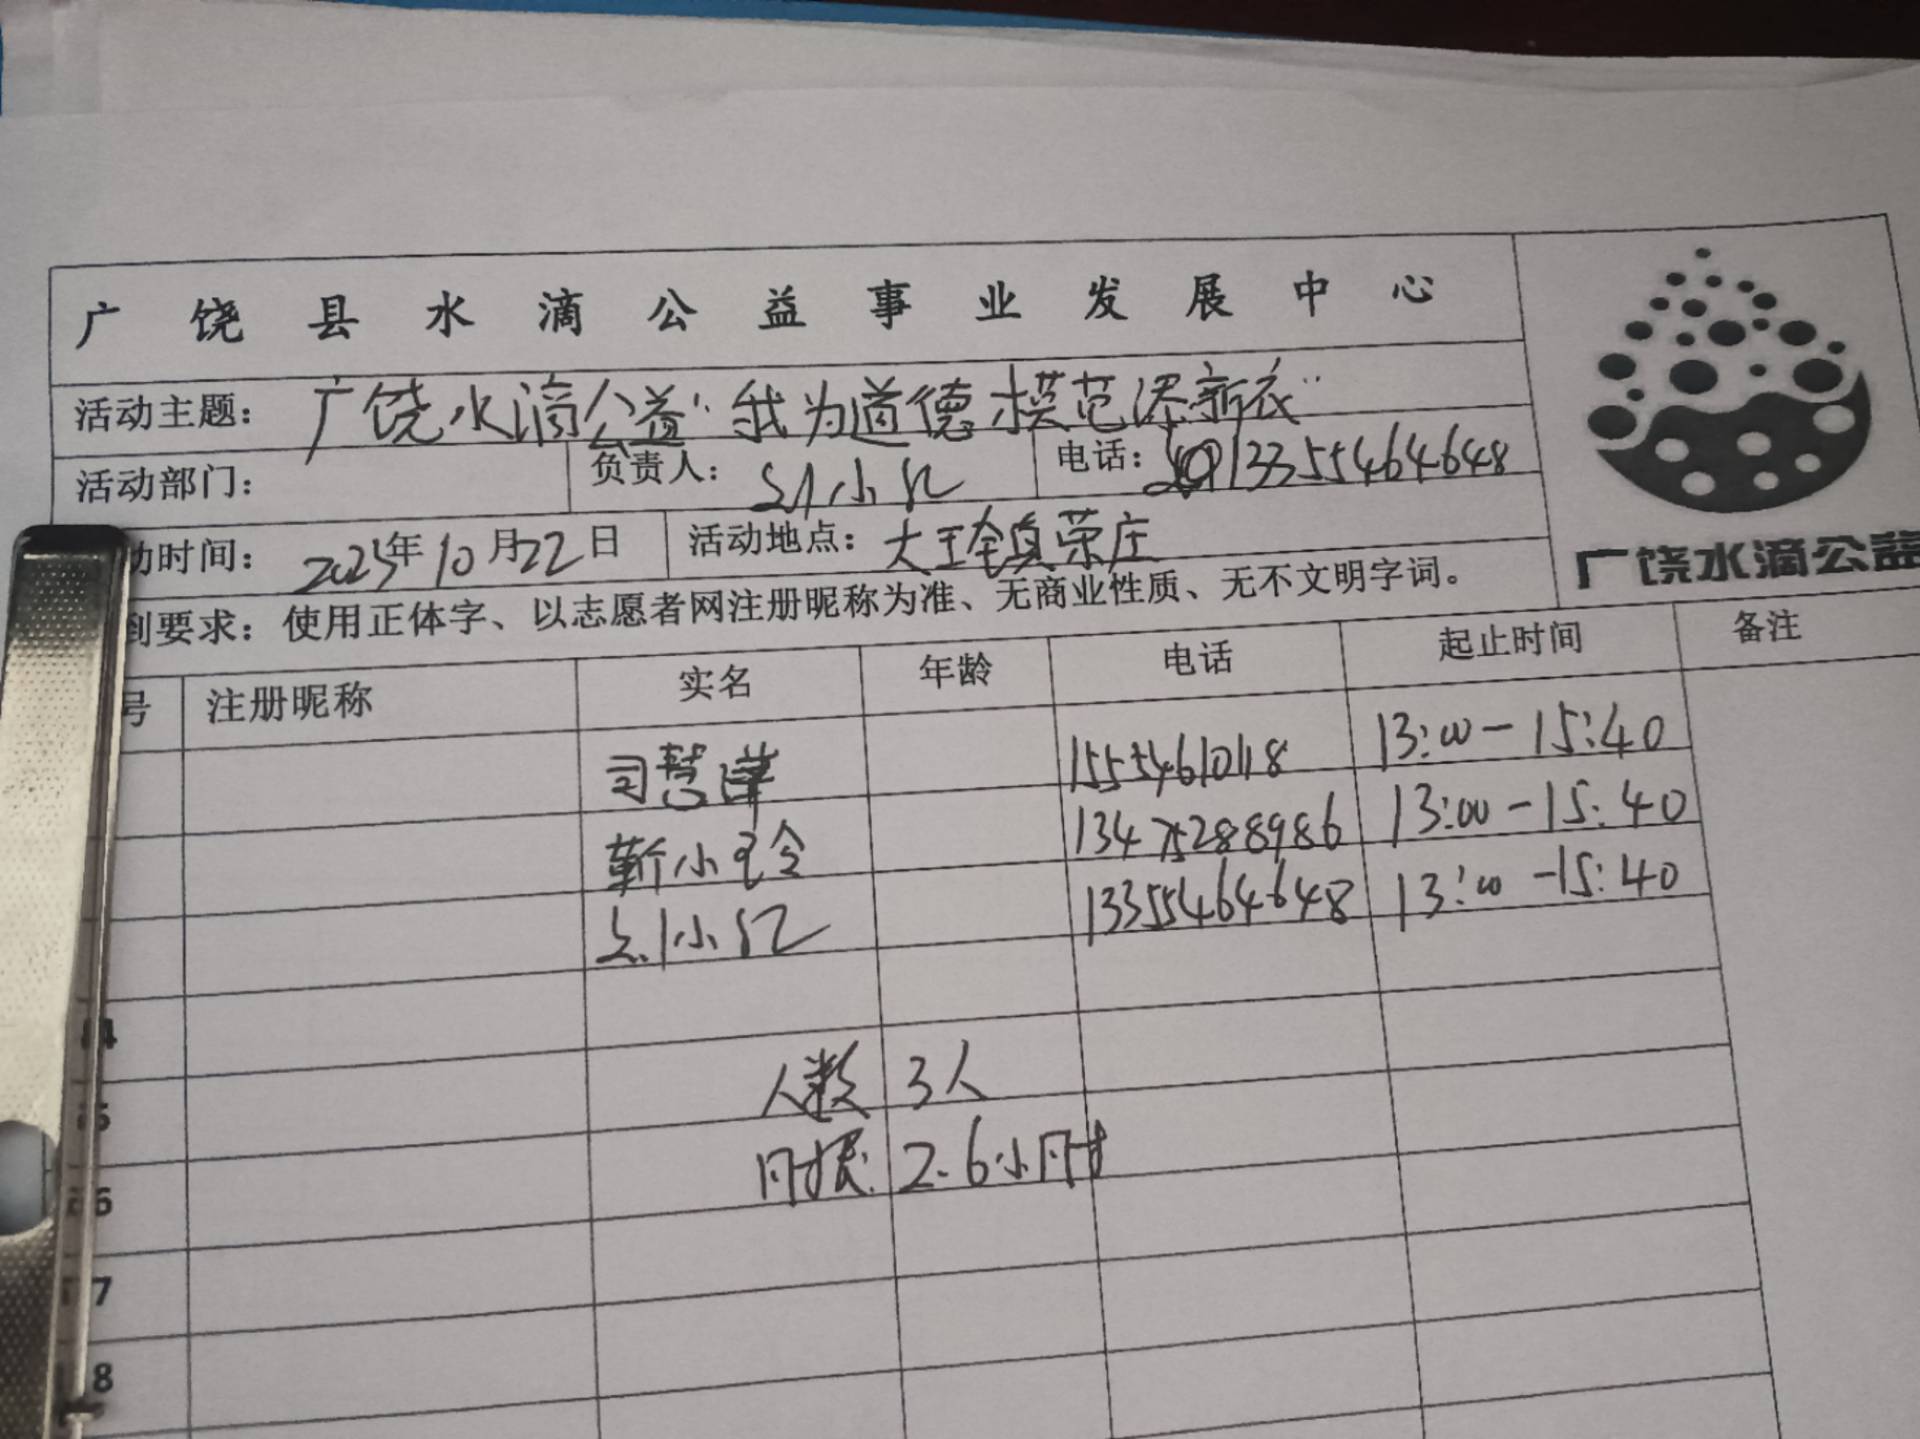 广饶县水滴公益事业发展中心
活动主题：广饶水滴公益“我为道德模范添新衣”
活动部门： 负责人：刘小红 电话：13355464648
动时间：2023年10月22日 活动地点：大王镇荣庄
到要求：使用正体字、以志愿者网注册昵称为准、无商业性质、无不文明字词。
广饶水滴公益
号 注册昵称 实名 年龄 电话 起止时间 备注
司慧萍 15554610118 13:00-15:40
靳小玲 13475288986 13:00-15:40
刘小红 13355464648 13:00-15:40
4
5 人数 3人
6 时长 2.6小时
7
8